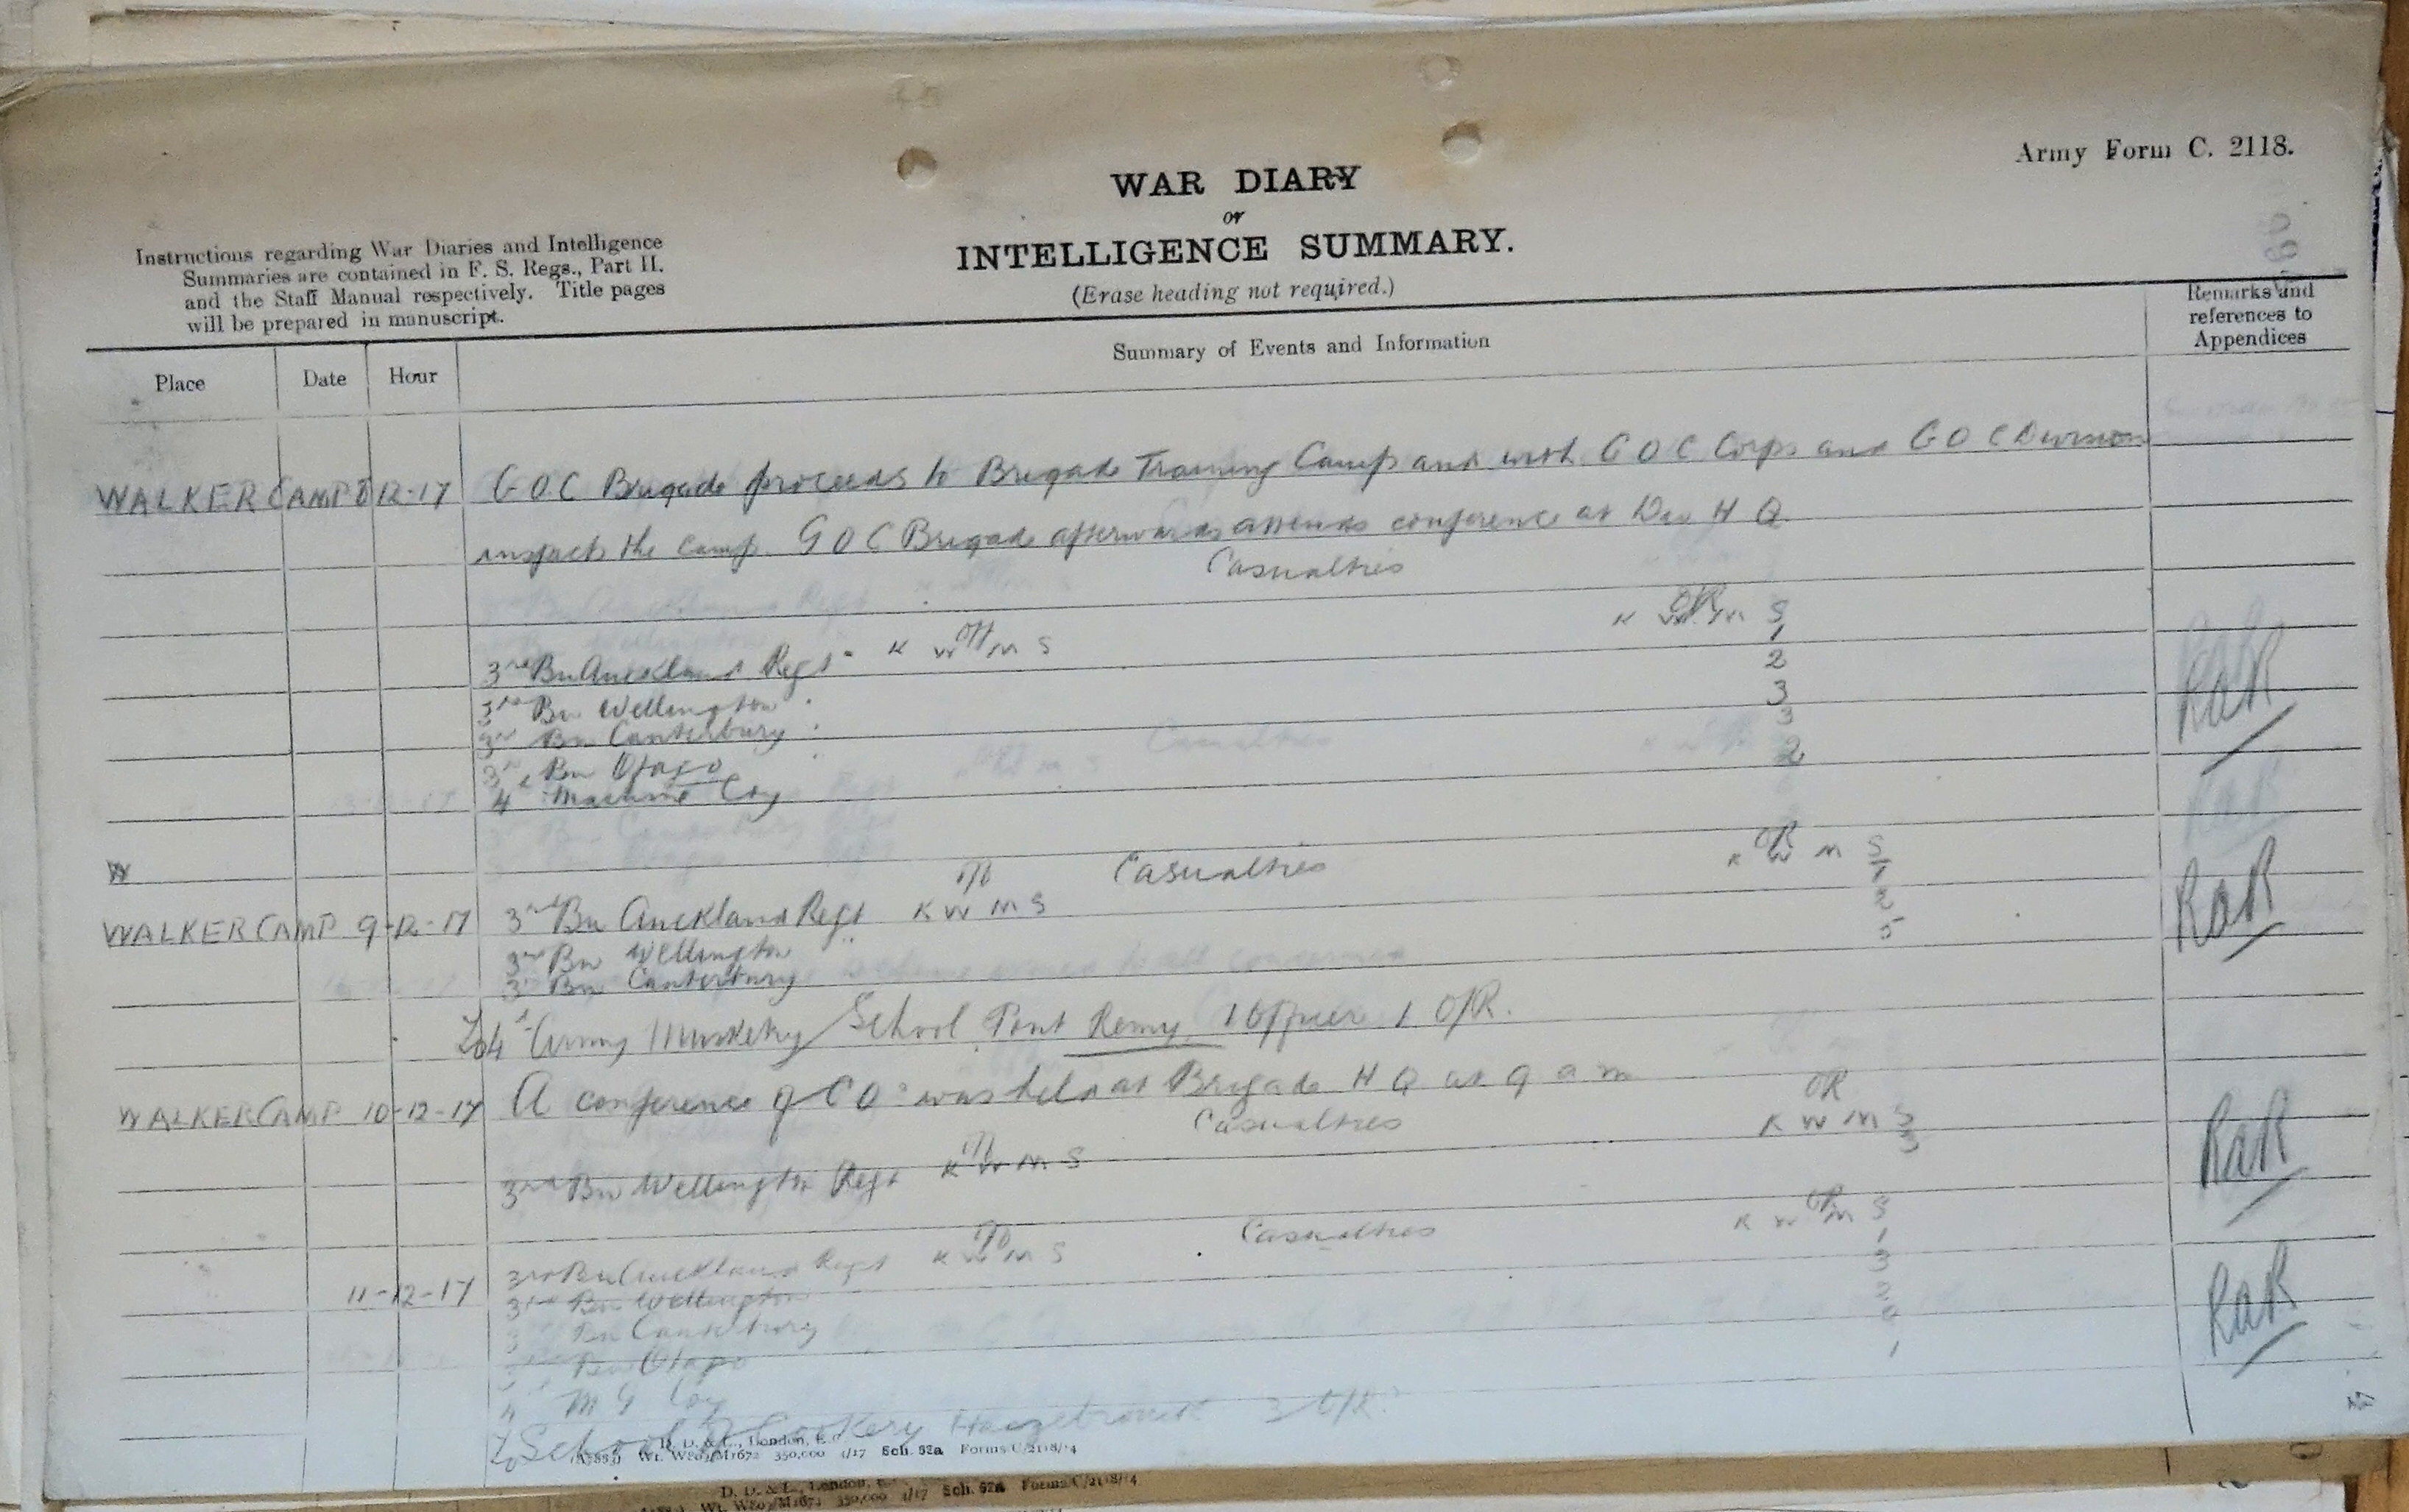 Army Form C. 2118.
WAR DIARY
or
INTELLIGENCE SUMMARY.
(Erase heading not required.)
Instructions regarding War Diaries and Intelligence
Summaries are contained in F. S. Regs., Part II.
and the Staff Manual respectively. Title pages
will be prepared in manuscript.
Place Date Hour Summary of Events and Information Remarks and references to Appendices
WALKER CAMP 8 12-17 G.O.C Brigade proceeds to Brigade Training Camp and with G O C Corps and G O C Division
inspects the camp. G O C Brigade afterwards attends conference at Div H Q
Casualties
Off OR
K W M S K W M S
3rd Bn Auckland Regt 1
3rd Bn Wellington 2
3rd Bn Canterbury 3
3rd Bn Otago 3
4th Machine Coy 2
RaR
W
Casualties
Off OR
K W M S K W M S
WALKER CAMP 9-12-17 3rd Bn Auckland Regt 1
3rd Bn Wellington 2
3rd Bn Canterbury 5
RaR
To 4th Army Musketry School Pont Remy 1 Officer 1 O/R.
WALKER CAMP 10-12-17 A conference of COs was held at Brigade H Q at 9 a m
Casualties
Off OR
K W M S K W M S
3rd Bn Wellington Regt 3
RaR
Casualties
Off OR
K W M S K W M S
11-12-17 3rd Bn Auckland Regt 1
3rd Bn Wellington 3
3rd Bn Canterbury 2
3rd Bn Otago
4 M G Coy 1
RaR
To School of Cookery Hazebrouck 3 O/R.
D. D. & L., London, E.C.
Wt. W809/M1672 350,000 4/17 Sch. 52a Forms/C/2118/14
D. D. & L., London, E.
Wt. W809/M1672 350,000 4/17 Sch. 52a Forms/C/2118/14